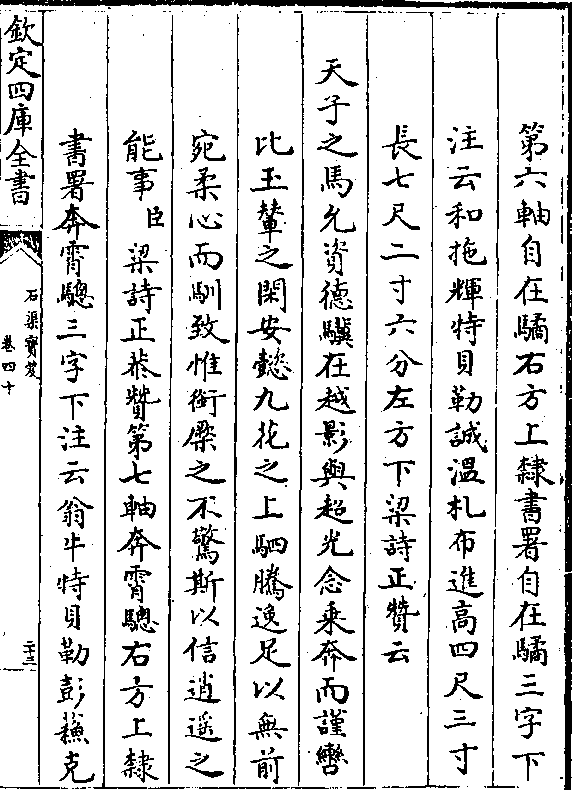 第六軸自在驈右方上隸書署自在驈三字下
注云和拖輝特貝勒誠溫札布進高四尺三寸
長七尺二寸六分左方下梁詩正贊云
天子之馬允資德驥在越影與超光念乘奔而謹轡
比玉輦之閑安懿九花之上駟騰逸足以無前
宛柔心而馴致惟銜橜之不驚斯以信逍遥之
能事臣梁詩正恭贊第七軸奔霄驄右方上隸
書署奔霄驄三字下注云翁牛特貝勒彭蘓克
欽定四庫全書
石渠寶笈
卷四十
二十三